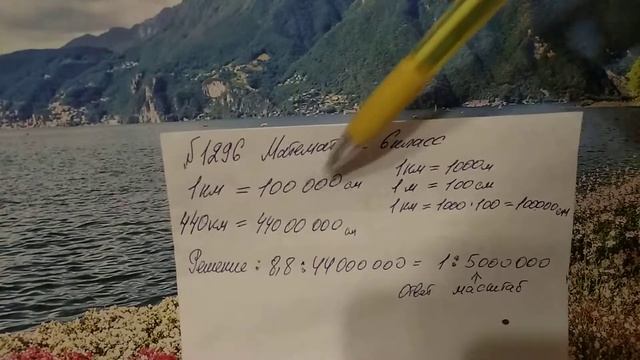 №1296 Математ 6 класс
1 км = 100 000 см
1 км = 1000 м
1 м = 100 см
1 км = 1000·100 = 100000 см
440 км = 44000 000 см
Решение: 8,8 : 44000000 = 1 : 5000000
↑
Ответ масштаб